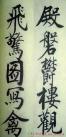 殿磐鬱樓觀
飛驚圖寫禽